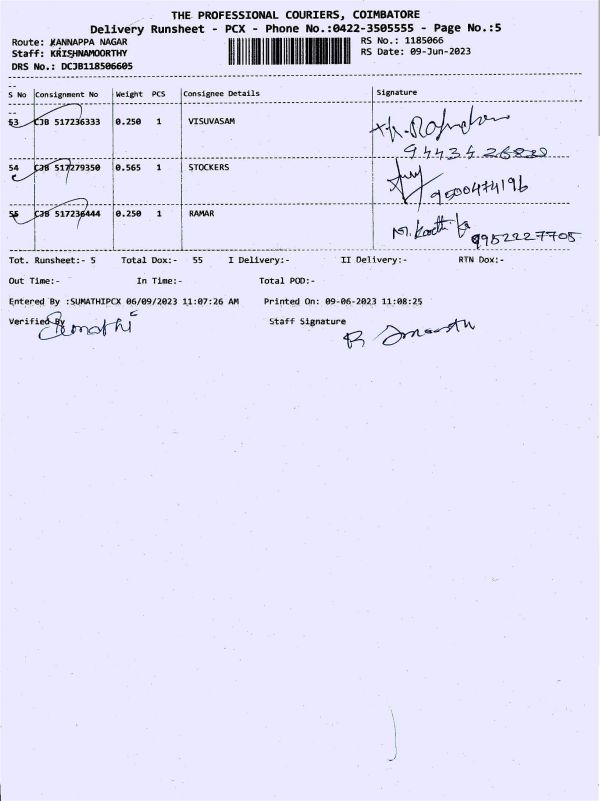 THE PROFESSIONAL COURIERS, COIMBATORE
Delivery Runsheet - PCX - Phone No.:0422-3505555 - Page No.:5
Route: KANNAPPA NAGAR RS No.: 1185066
Staff: KRISHNAMOORTHY RS Date: 09-Jun-2023
DRS No.: DCJB118506605
S No Consignment No Weight PCS Consignee Details Signature
53 CJB 517236333 0.250 1 VISUVASAM
94434 26820
54 CJB 517279350 0.565 1 STOCKERS
9500474196
55 CJB 517236444 0.250 1 RAMAR M. Karthika
9952227705
Tot. Runsheet:- 5 Total Dox:- 55 I Delivery:- II Delivery:- RTN Dox:-
Out Time:- In Time:- Total POD:-
Entered By :SUMATHIPCX 06/09/2023 11:07:26 AM Printed On: 09-06-2023 11:08:25
Verified By Staff Signature
Sumathi